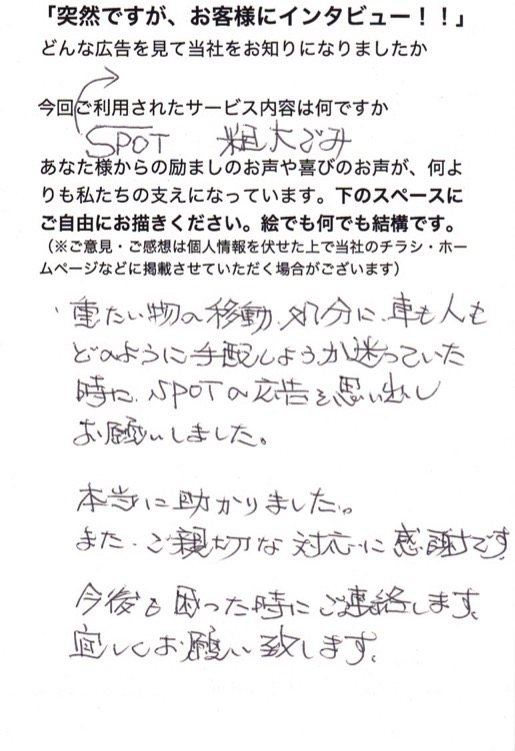 「突然ですが、お客様にインタビュー！！」
どんな広告を見て当社をお知りになりましたか
今回ご利用されたサービス内容は何ですか
SPOT 粗大ごみ
あなた様からの励ましのお声や喜びのお声が、何よ
りも私たちの支えになっています。下のスペースに
ご自由にお描きください。絵でも何でも結構です。
（※ご意見・ご感想は個人情報を伏せた上で当社のチラシ・ホー
ムページなどに掲載させていただく場合がございます）
重たい物の移動、処分に、車も人も
どのように手配しようか迷っていた
時に、SPOTの広告を思い出し
お願いしました。
本当に助かりました。
また、ご親切な対応に感謝です
今後も困った時にご連絡します。
宜しくお願い致します。